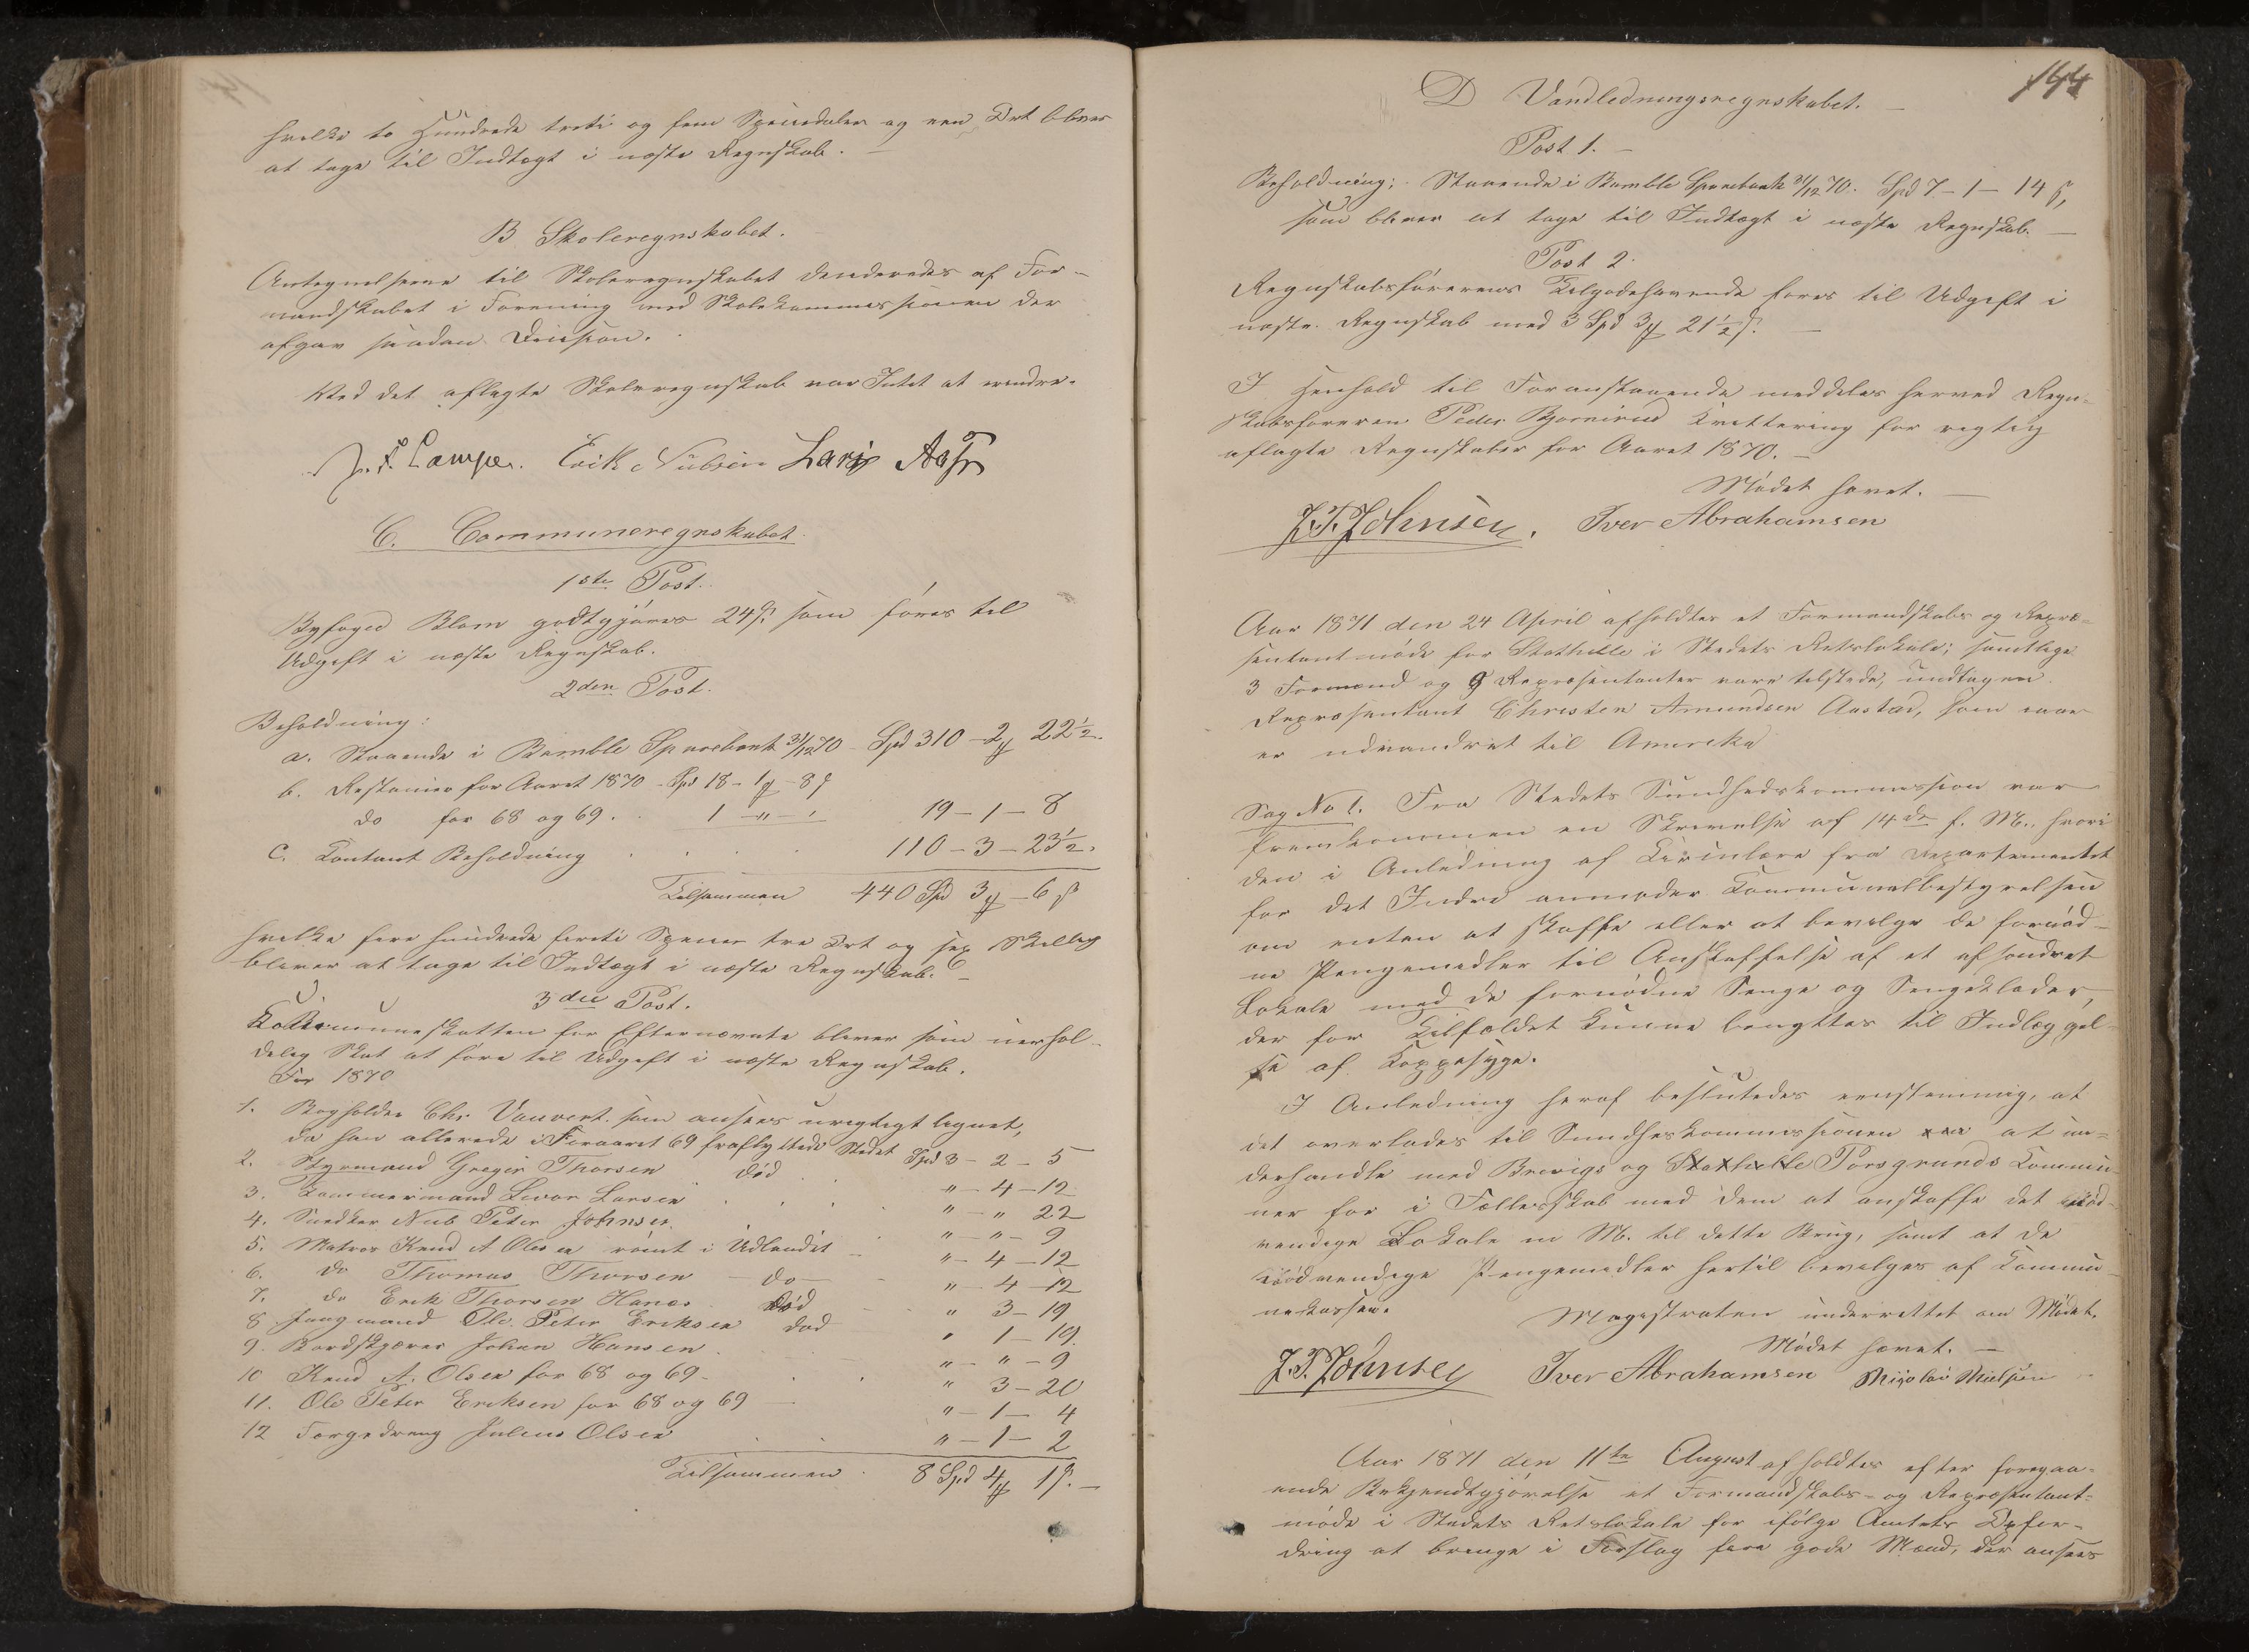 hvilke to Hundrede treti og fem Speciedaler og een Ort bliver
at tage til Indtægt i næste Regnskab. —
B Skoleregnskabet.
Antegnelserne til Skoleregnskabet decideredes af For-
mandskabet i Forening med Skolekommissionen der
afgav saadan Decision.
Ved det aflagte Skoleregnskab var Intet at erindre.
Erik Nielsen Lars
C. Communeregnskabet.
1ste Post.
Byfoged Blom godtgjøres 24 ß som føres til
Udgift i næste Regnskab.
2den Post.
Beholdning:
a. Staaende i Bamble Sparebank 31/12 70 - Spd 310 - 2 - 22½.
b. Restancer for Aaret 1870 - Spd 18 - 1 - 8 ß
do for 68 og 69. 1 - " - " 19 - 1 - 8
c. Contant Beholdning 110 - 3 - 23½.
Tilsammen 440 Spd 3 - 6 ß
hvilke fire hundrede firti Specier tre Ort og sex Skilling
bliver at tage til Indtægt i næste Regnskab. —
3die Post.
Kommuneskatten for Efternævnte bliver som uerhol-
delig Skat at føre til Udgift i næste Regnskab.
For 1870
1. Bogholder Chr. som ansees urigtigt lignet,
da han allerede i Foraaret 69 fraflyttede Stedet Spd 3 - 2 - 5
2. Styrmand Gregir Thorsen død " - 4 - 12
3. Tømmermand Livor Larsen " - " 22
4. Snedker Niels Peter Johnsen " - " - 9
5. Matros Knud A Olsen rømt i Udlandet " - 4 - 12
6. do Thomas Thorsen - do - " - 4 - 12
7. do Erik Thorsen død " 3 - 19
8 Jungmand Ole Peter Eriksen død " 1 - 19.
9. Bordskjærer Johan Hansen " - " - 9
10 Knud A. Olsen for 68 og 69 - " 3 - 20
11. Ole Peter Eriksen for 68 og 69 " - 1 - 4
12 Julius Olsen " - 1 - 2
Tilsammen 8 Spd 4 1 ß. —
144
D Vandledningsregnskabet. —
Post 1. —
Beholdning: Staaende i Bamble Sparebank 31/12 70. Spd 7 - 1 - 14 ß,
som bliver at tage til Indtægt i næste Regnskab. —
Post 2.
Regnskabsførerens Tilgodehavende føres til Udgift i
næste Regnskab med 3 Spd 3 21½ ß. —
I Henhold til Foranstaaende meddeles herved Regn-
skabsføreren Peder Kvittering for rigtig
aflagte Regnskaber for Aaret 1870. —
Mødet hævet. —
J.P. Johnsen. Iver Abrahamsen
Aar 1871 den 24 April afholdtes et Formandskabs og Repræ-
sentantmøde for Stathelle i Stedets Retslokale; samtlige
3 Formænd og 9 Repræsentanter vare tilstede, undtagen
Repræsentant Christen Amundsen Aastad, som
er udvandret til Amerika
Sag No 1. Fra Stedets Sundhedskommission var
fremkommen en Skrivelse af 14de f. M., hvori
den i Anledning af Cirkulære fra Departementet
for det Indre anmoder Kommunalbestyrelsen
om enten at skaffe eller at bevilge de fornød-
ne Pengemidler til Anskaffelse af et afsondret
Lokale med de fornødne Senge og Sengeklæder,
der for Tilfældet kunne benyttes til Indlæggel-
se af Koppesyge.
I Anledning heraf besluttedes eenstemmig, at
det overlades til Sundhedskommissionen at un-
derhandle med Brevigs og Stathelle Porsgrunds Kommu-
ner for i Fællesskab med dem at anskaffe det nød-
vendige Lokale m M. til dette Brug, samt at de
nødvendige Pengemidler hertil bevilges af Kommu-
nekassen.
Magistraten underrettet om Mødet.
Mødet hævet. —
J.P. Johnsen Iver Abrahamsen Nicolai Nielsen
Aar 1871 den 11te August afholdtes efter foregaa-
ende Bekjendtgjørelse et Formandskabs- og Repræsentant-
møde i Stedets Retslokale for ifølge Amtets Opfor-
dring at bringe i Forslag fire gode Mænd, der ansees